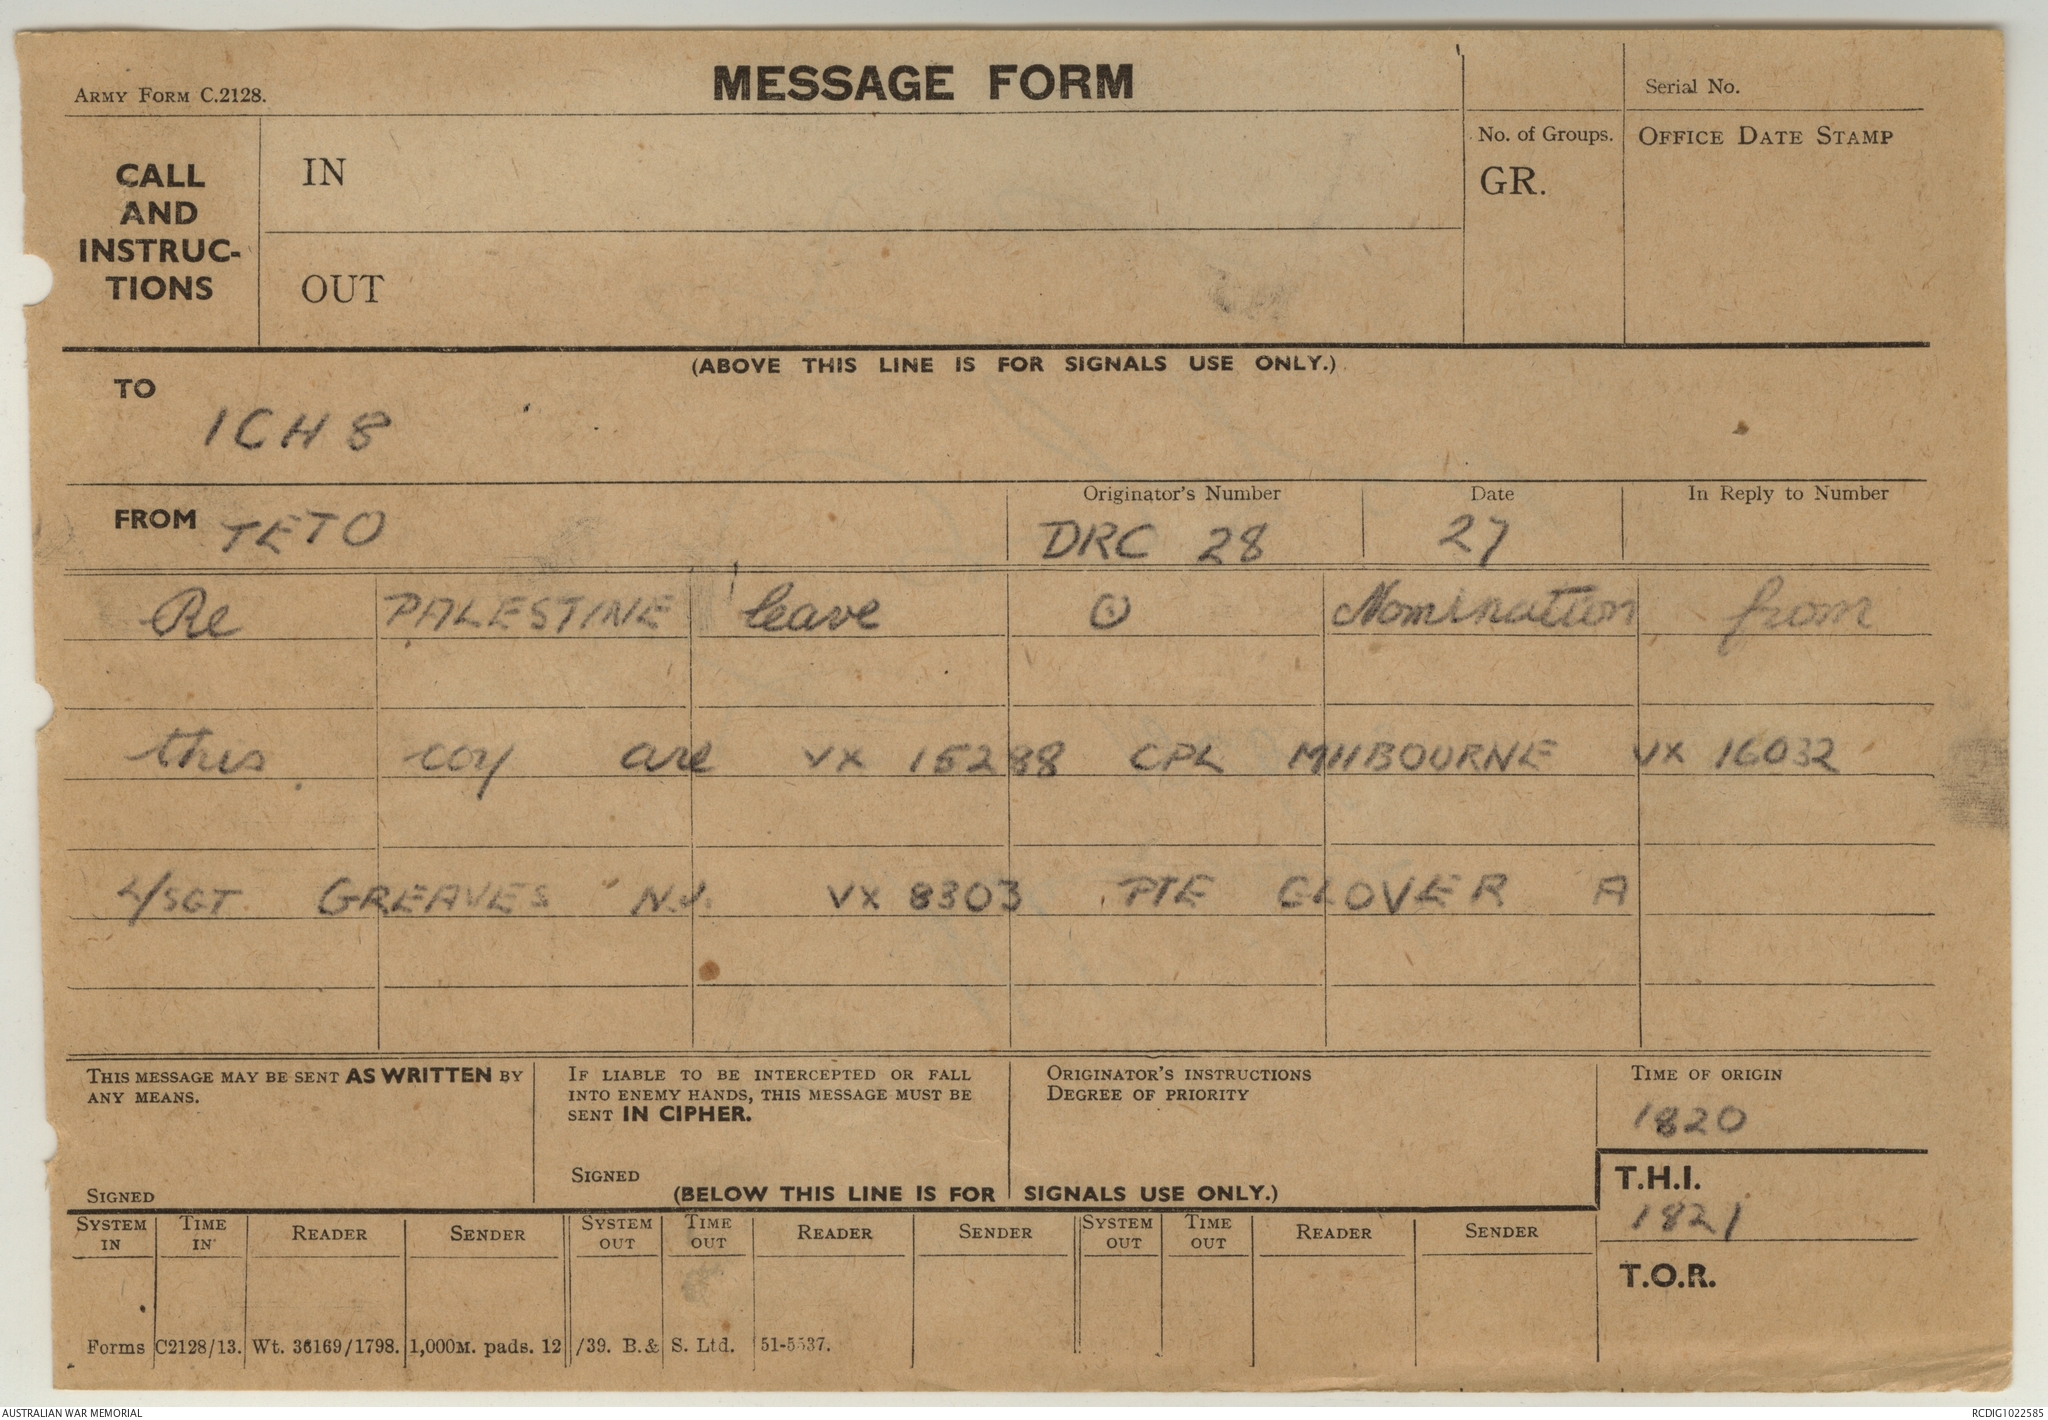 ARMY FORM C.2128.
MESSAGE FORM
Serial No.
CALL
AND
INSTRUC-
TIONS
IN
OUT
No. of Groups.
GR.
OFFICE DATE STAMP
(ABOVE THIS LINE IS FOR SIGNALS USE ONLY.)
TO
1CH8
FROM TETO
Originator's Number
DRC 28
Date
27
In Reply to Number
Re PALESTINE leave ⊙ Nomination from
this coy are VX 15288 CPL MILBOURNE VX 16032
L/SGT. GREAVES N.J. VX 8303 PTE GLOVER A
THIS MESSAGE MAY BE SENT AS WRITTEN BY
ANY MEANS.
SIGNED
IF LIABLE TO BE INTERCEPTED OR FALL
INTO ENEMY HANDS, THIS MESSAGE MUST BE
SENT IN CIPHER.
SIGNED
ORIGINATOR'S INSTRUCTIONS
DEGREE OF PRIORITY
TIME OF ORIGIN
1820
(BELOW THIS LINE IS FOR SIGNALS USE ONLY.)
T.H.I.
1821
T.O.R.
SYSTEM IN
TIME IN
READER
SENDER
SYSTEM OUT
TIME OUT
READER
SENDER
SYSTEM OUT
TIME OUT
READER
SENDER
Forms C2128/13. Wt. 36169/1798. 1,000M. pads. 12/39. B.& S. Ltd. 51-5537.
AUSTRALIAN WAR MEMORIAL
RCDIG1022585